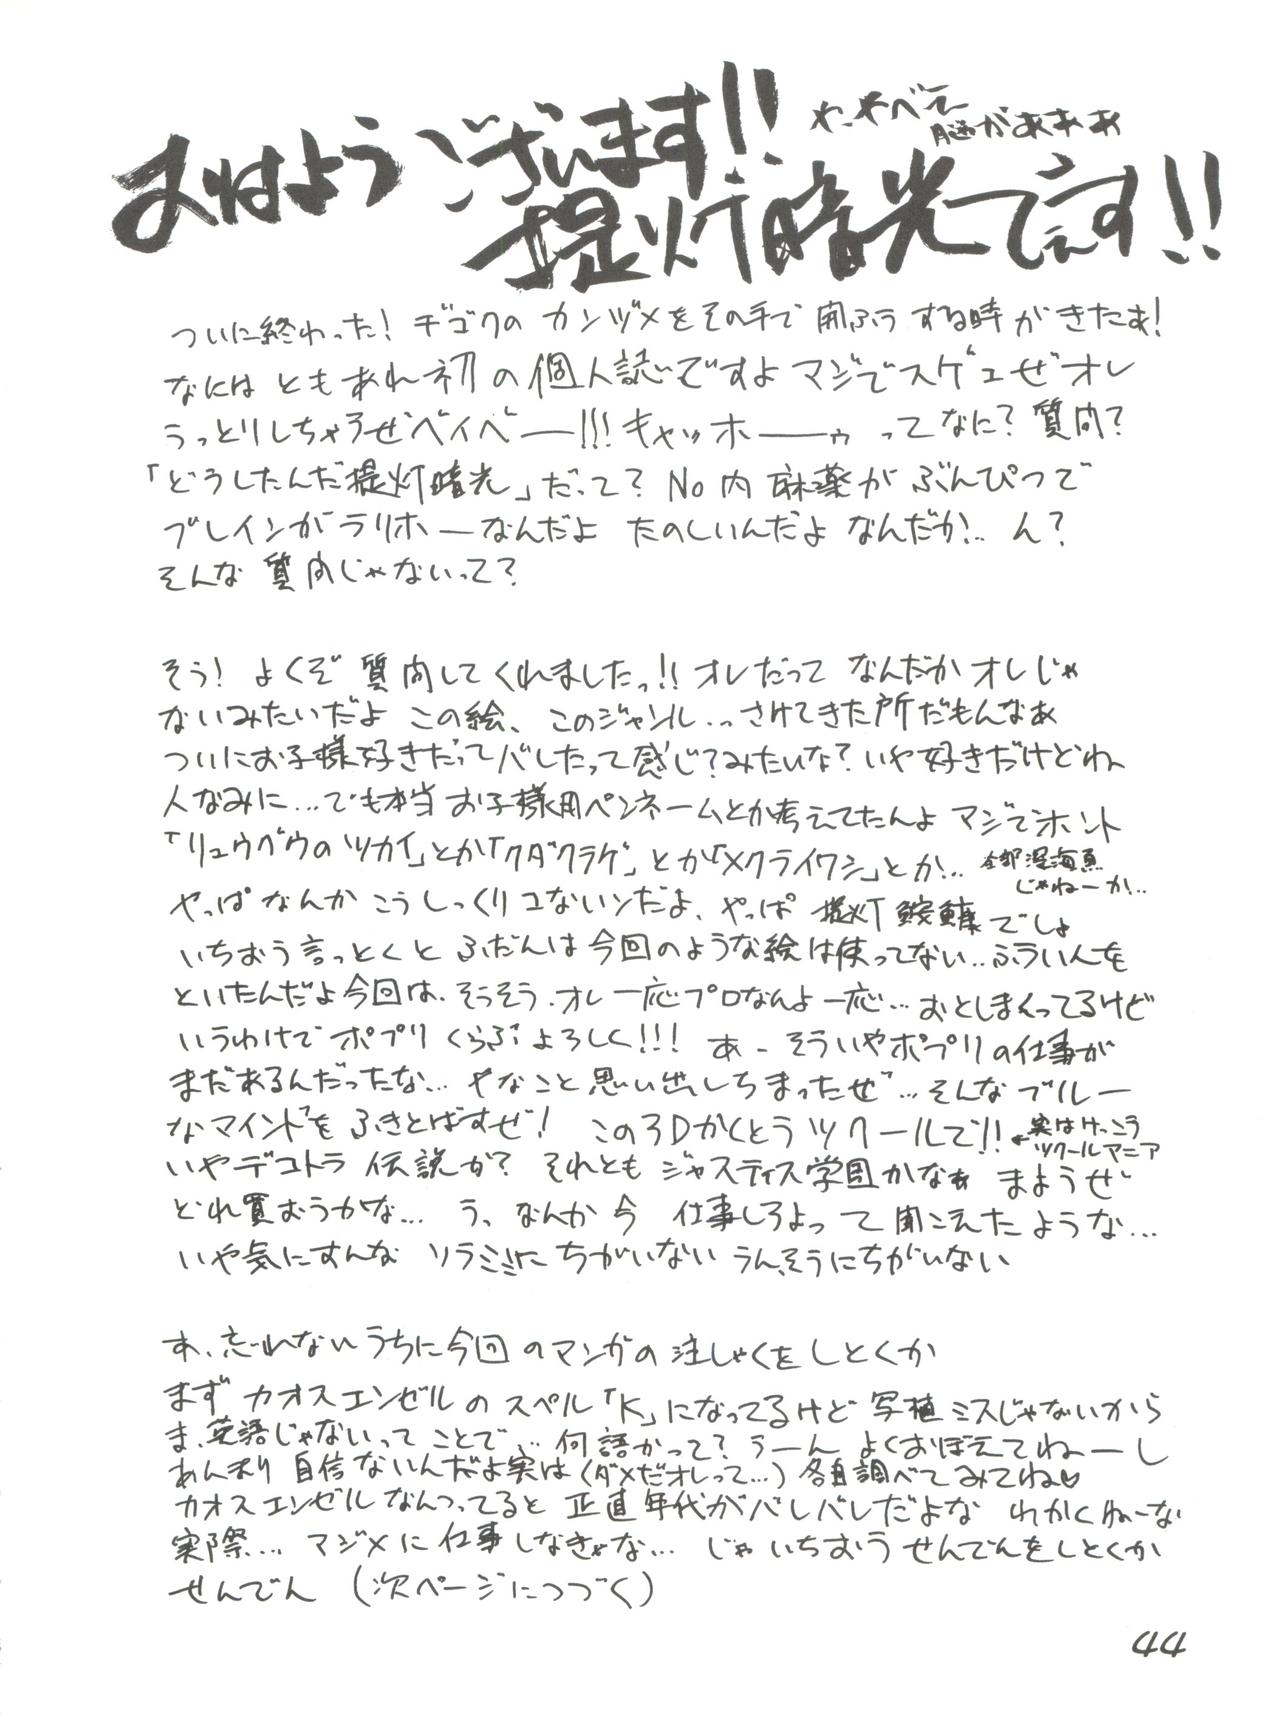 おはようございます!!
や、やべえ
脳がぁぁぁ
提灯暗光でぇす!!
ついに終わった! ヂゴクのカンヅメをその手で開ふうする時がきたぁ!
なにはともあれ初の個人誌ですよマジでスゲェぜオレ
うっとりしちゃうぜベイベー!!!キャッホーゥってなに?質問?
「どうしたんだ提灯暗光」だって? No内麻薬がぶんぴつで
ブレインがラリホーなんだよ たのしいんだよなんだか‥ん?
そんな質問じゃないって?
そう! よくぞ質問してくれましたっ!!オレだってなんだかオレじゃ
ないみたいだよこの絵、このジャンル‥さけてきた所だもんなぁ
ついにお子様好きだってバレたって感じ?みたいな?いや好きだけどね
人なみに…でも本当お子様用ペンネームとか考えてたんよマジでホント
「リュウグウのツカイ」とか「クダクラゲ」とか「メクライワシ」とか‥
全部深海魚
じゃねーか‥
やっぱなんかこうしっくりコないンだよ、やっぱ提灯鮟鱇でしょ
いちおう言っとくとふだんは今回のような絵は使ってない‥ふういんを
といたんだよ今回は、そうそう、オレ一応プロなんよ一応…おとしまくってるけど
いうわけでポプリくらぶよろしく!!! あ、そういやポプリの仕事が
まだあるんだったな… やなこと思い出しちまったぜ…そんなブルー
なマインドをふきとばすぜ! この3Dかくとうツクールで!!
←実はけっこう
ツクールマニア
いやデコトラ伝説か? それともジャスティス学園かなぁ まようぜ
どれ買おうかな… う、なんか今 仕事しろよって聞こえたような…
いや気にすんな ソラミミにちがいない うん、そうにちがいない
あ、忘れないうちに今回のマンガの注しゃくをしとくか
まずカオスエンゼルのスペル「K」になってるけど写植ミスじゃないから
ま、英語じゃないってことで‥何語かって?うーんよくおぼえてねーし
あんまり自信ないんだよ実は(ダメだオレって…)各自調べてみてね♡
カオスエンゼルなんつってると正直年代がバレバレだよな わかくねーな
実際… マジメに仕事しなきゃな… じゃいちおうせんでんをしとくか
せんでん (次ページにつづく)
44